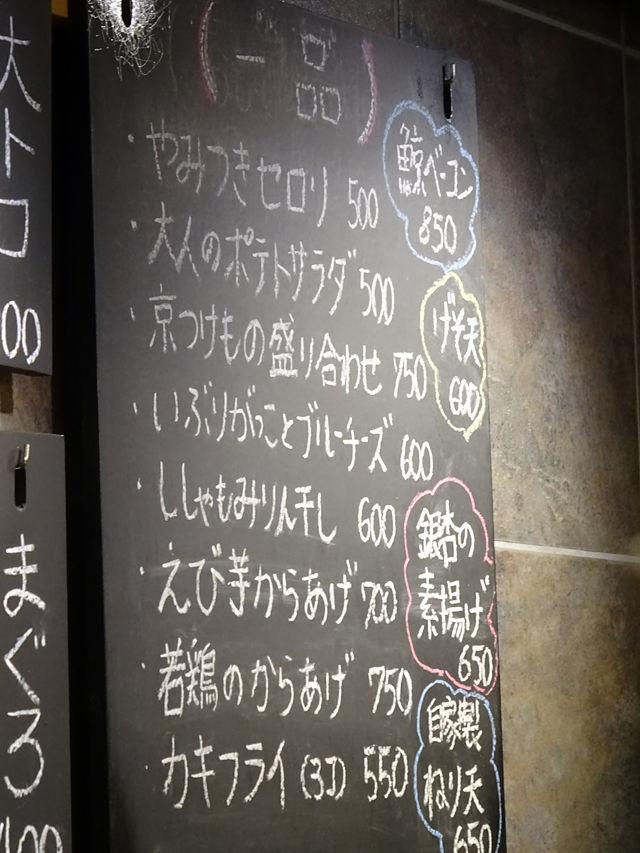 (一品)
・やみつきセロリ 500
・大人のポテトサラダ 500
・京つけもの盛り合わせ 750
・いぶりがっことブルーチーズ 600
・ししゃもみりん干し 600
・えび芋からあげ 700
・若鶏のからあげ 750
・カキフライ(3コ) 550
鯨ベーコン
850
げそ天
600
銀杏の
素揚げ
650
自家製
ねり天
650
大トロ
00
まぐろ
100